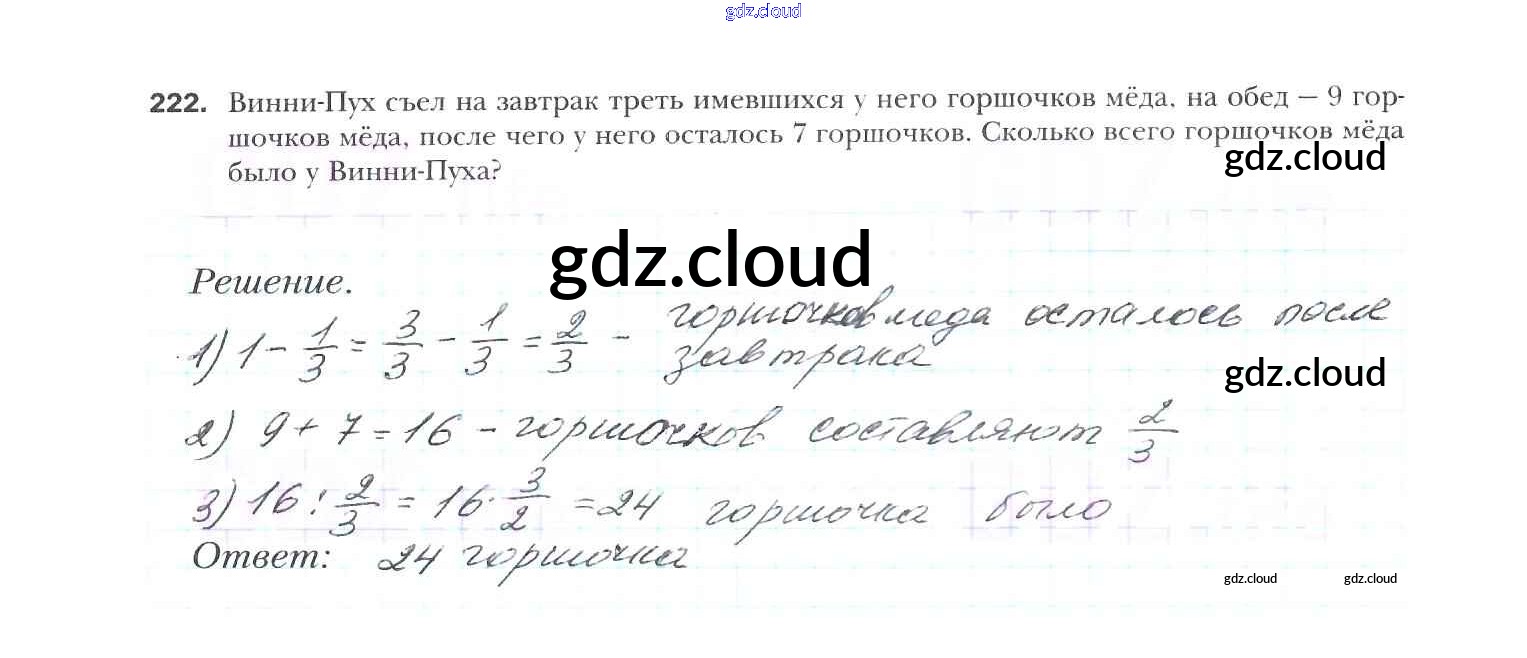 gdz.cloud
222. Винни-Пух съел на завтрак треть имевшихся у него горшочков мёда, на обед — 9 гор-
шочков мёда, после чего у него осталось 7 горшочков. Сколько всего горшочков мёда
было у Винни-Пуха?
gdz.cloud
gdz.cloud
Решение.
1) 1 - 1/3 = 3/3 - 1/3 = 2/3 - горшочков меда осталось после
завтрака
gdz.cloud
2) 9 + 7 = 16 - горшочков составляют 2/3
3) 16 : 2/3 = 16 · 3/2 = 24 горшочка было
Ответ: 24 горшочка
gdz.cloud gdz.cloud